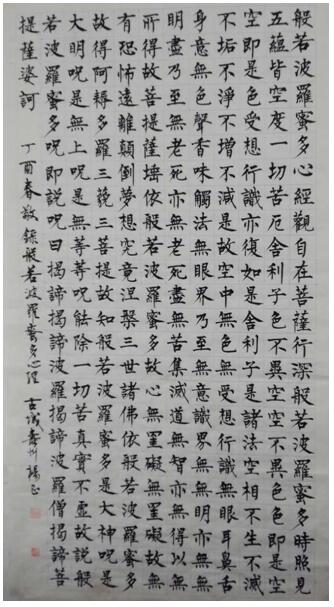 般若波羅蜜多心經觀自在菩薩行深般若波羅蜜多時照見
五蘊皆空度一切苦厄舍利子色不異空空不異色色即是空
空即是色受想行識亦復如是舍利子是諸法空相不生不滅
不垢不淨不增不減是故空中無色無受想行識無眼耳鼻舌
身意無色聲香味觸法無眼界乃至無意識界無無明亦無無
明盡乃至無老死亦無老死盡無苦集滅道無智亦無得以無
所得故菩提薩埵依般若波羅蜜多故心無罣礙無罣礙故無
有恐怖遠離顛倒夢想究竟涅槃三世諸佛依般若波羅蜜多
故得阿耨多羅三藐三菩提故知般若波羅蜜多是大神呪是
大明呪是無上呪是無等等呪能除一切苦真實不虛故說般
若波羅蜜多呪即說呪曰揭諦揭諦波羅揭諦波羅僧揭諦菩
提薩婆訶 丁酉春敬錄般若波羅蜜多心經 古城青州